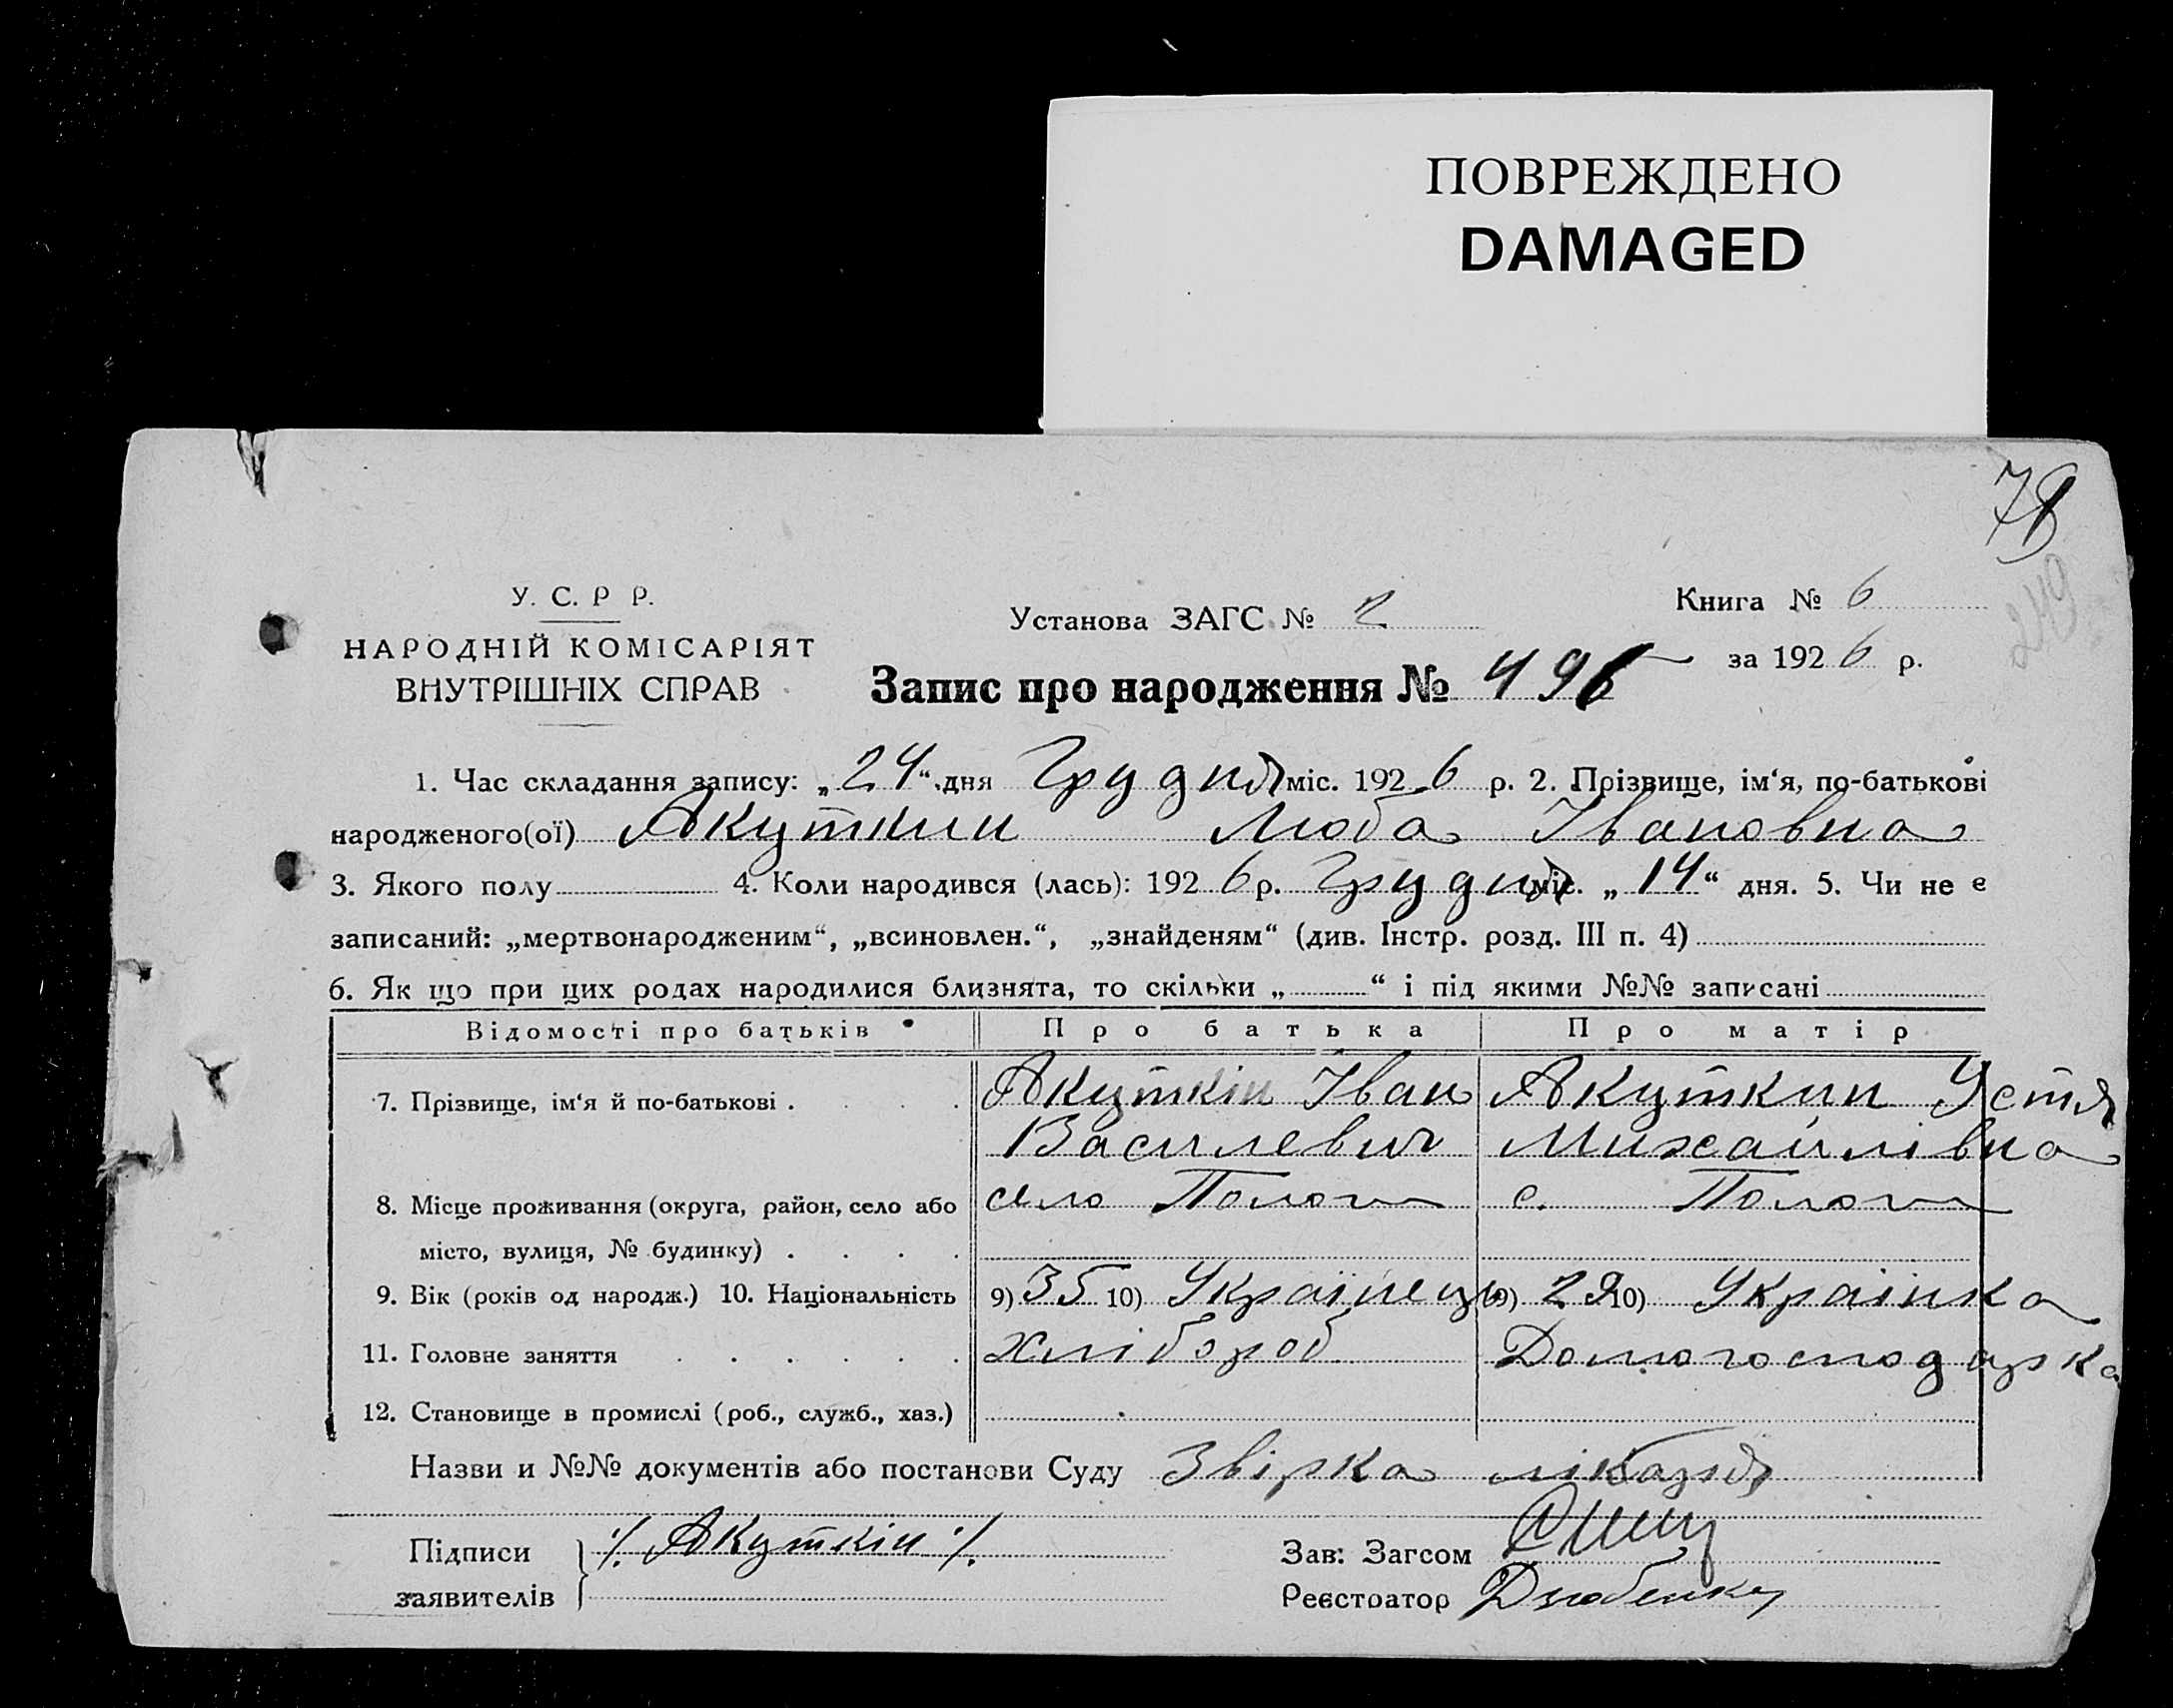 ПОВРЕЖДЕНО
DAMAGED
249
У. С. Р Р.
НАРОДНІЙ КОМІСАРІЯТ
ВНУТРІШНІХ СПРАВ
Установа ЗАГС № 2
Книга № 6
за 1926 р.
Запис про народження № 496
1. Час складання запису: „24“ дня Грудня міс. 1926 р. 2. Прізвище, ім‘я, по-батькові
народженого(ої) Якуткин Люба Івановна
3. Якого полу 4. Коли народився (лась): 1926 р. Грудня міс. „14“ дня. 5. Чи не є
записаний: „мертвонародженим“, „всиновлен.“, „знайденям“ (див. Інстр. розд. III п. 4)
6. Як що при цих родах народилися близнята, то скільки „ “ і під якими №№ записані
Відомості про батьків Про батька Про матір
7. Прізвище, ім‘я й по-батькові . . . . Якуткін Іван Якуткин Устя
Василевич Михайлівна
8. Місце проживання (округа, район, село або село Пологи с. Пологи
місто, вулиця, № будинку) . . . .
9. Вік (років од народж.) 10. Національність 9) 35 10) Українець 9) 29 10) Українка
11. Головне заняття . . . . . . Хлібороб Домогосподарка
12. Становище в промислі (роб., служб., хаз.)
Назви и №№ документів або постанови Суду Звірка
Підписи /. Якуткін /.
заявителів
Зав: Загсом
Реєстратор Дзюбенко